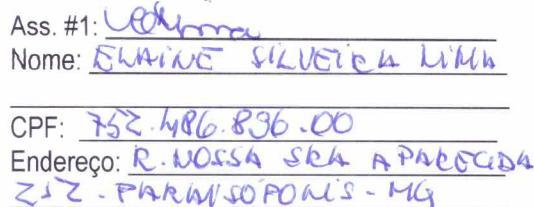 Ass. #1:
Nome: ELAINE SILVEIRA LIMA
CPF: 752.486.836.00
Endereço: R. NOSSA SRA APARECIDA
252 - PARAISÓPOLIS - MG